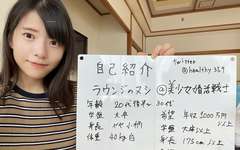 自己紹介
twitter
@healthy357
ラウンジのヌシ @美少女婚活戦士
年齢 20代後半
学歴 大卒
身長 やや小柄
体重 40kg台
30代
希望 年収1000万円以上
学歴 大卒以上
身長 175cm以上